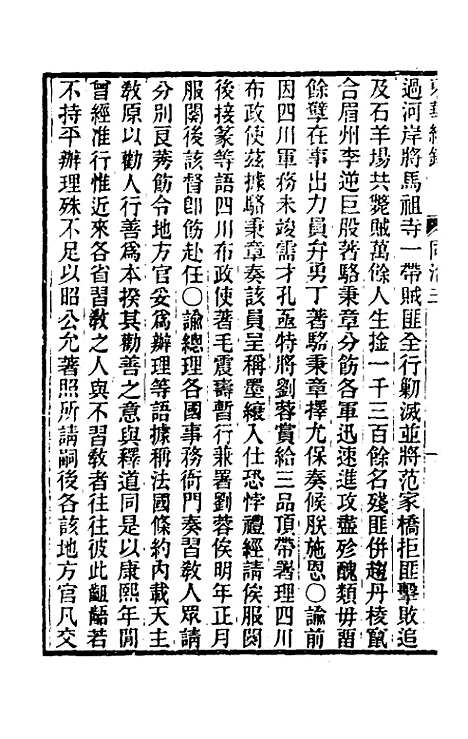 東華續錄 同治三
過河岸將馬祖寺一帶賊匪全行勦滅並將范家橋拒匪擊敗追
及石羊場共斃賊萬餘人生擒一千三百餘名殘匪併趨丹棱竄
合眉州李逆巨股著駱秉章分筋各軍迅速進攻盡殄醜類毋留
餘孽在事出力員弁勇丁著駱秉章擇尤保奏候朕施恩○諭前
因四川軍務未竣需才孔亟特將劉蓉賞給三品頂帶署理四川
布政使茲據駱秉章奏該員呈稱墨縗入仕恐悖禮經請俟服闋
後接篆等語四川布政使著毛震壽暫行兼署劉蓉俟明年正月
服闋後該督卽筋赴任○諭總理各國事務衙門奏習教人眾請
分別良莠筋令地方官妥爲辦理等語據稱法國條約內載天主
敎原以勸人行善爲本揆其勸善之意與釋道同是以康熙年間
曾經准行惟近來各省習敎之人與不習敎者往往彼此齟齬若
不持平辦理殊不足以昭公允著照所請嗣後各該地方官凡交